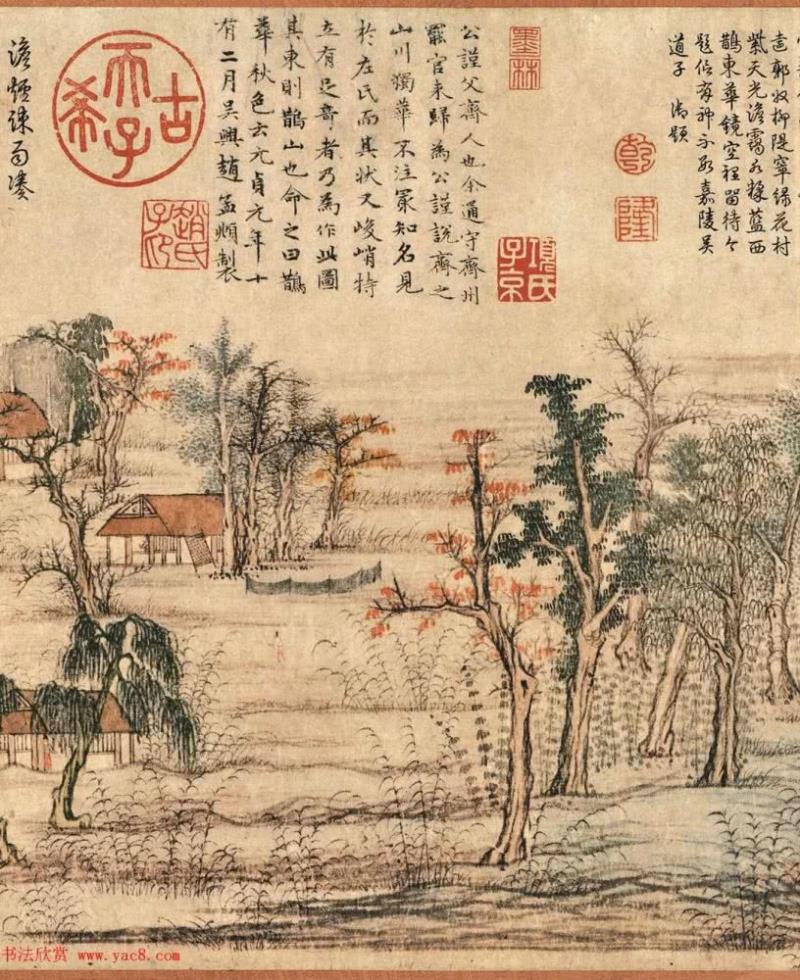 郭収柳隄窣緑花村
紫天光澹靄水揉藍西
鵲東華鏡空裡留待
題信有神不數嘉陵吴
道子 御題
乾
隆
墨林
項氏子京
公謹父齊人也余通守齊州
罷官來歸為公謹說齊之
山川獨華不注最知名見
於左氏而其狀又峻峭特
立有足奇者乃為作此圖
其東則鵲山也命之曰鵲
華秋色云元貞元年十
有二月吳興趙孟頫製
古希天子
趙氏子昂
澹煙疎雨湊
书法欣赏 www.yac8.com